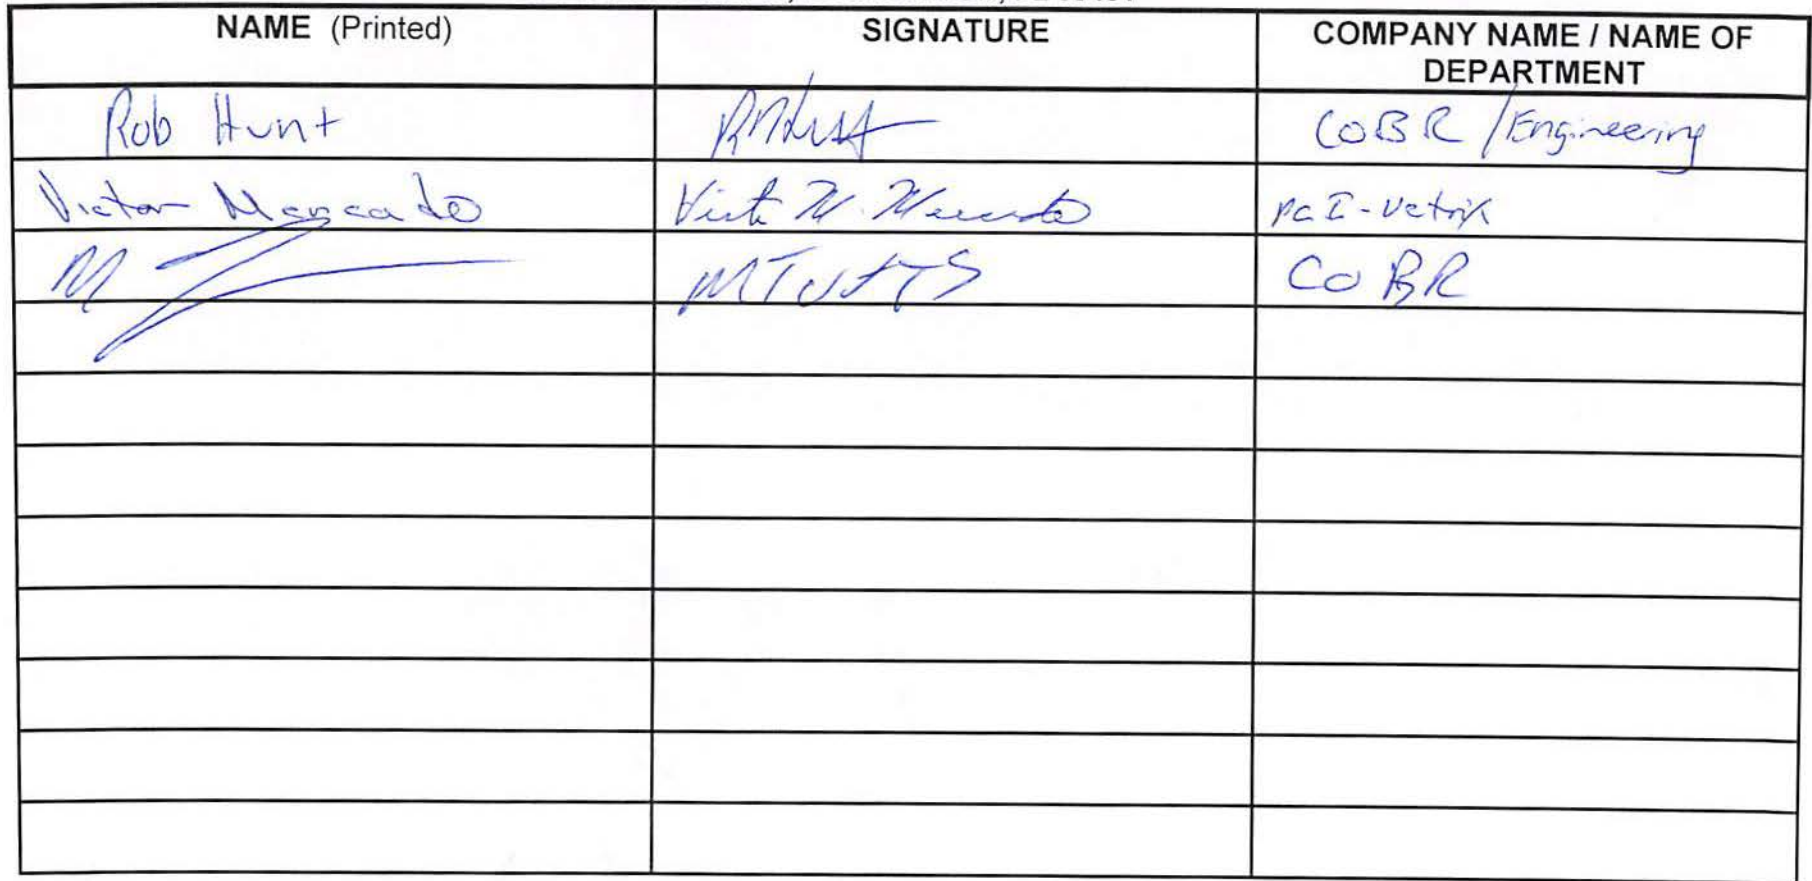 NAME (Printed) SIGNATURE COMPANY NAME / NAME OF
DEPARTMENT
Rob Hunt COBR / Engineering
Victor Mercado Victor M. Mercado
M MTUTTS COBR